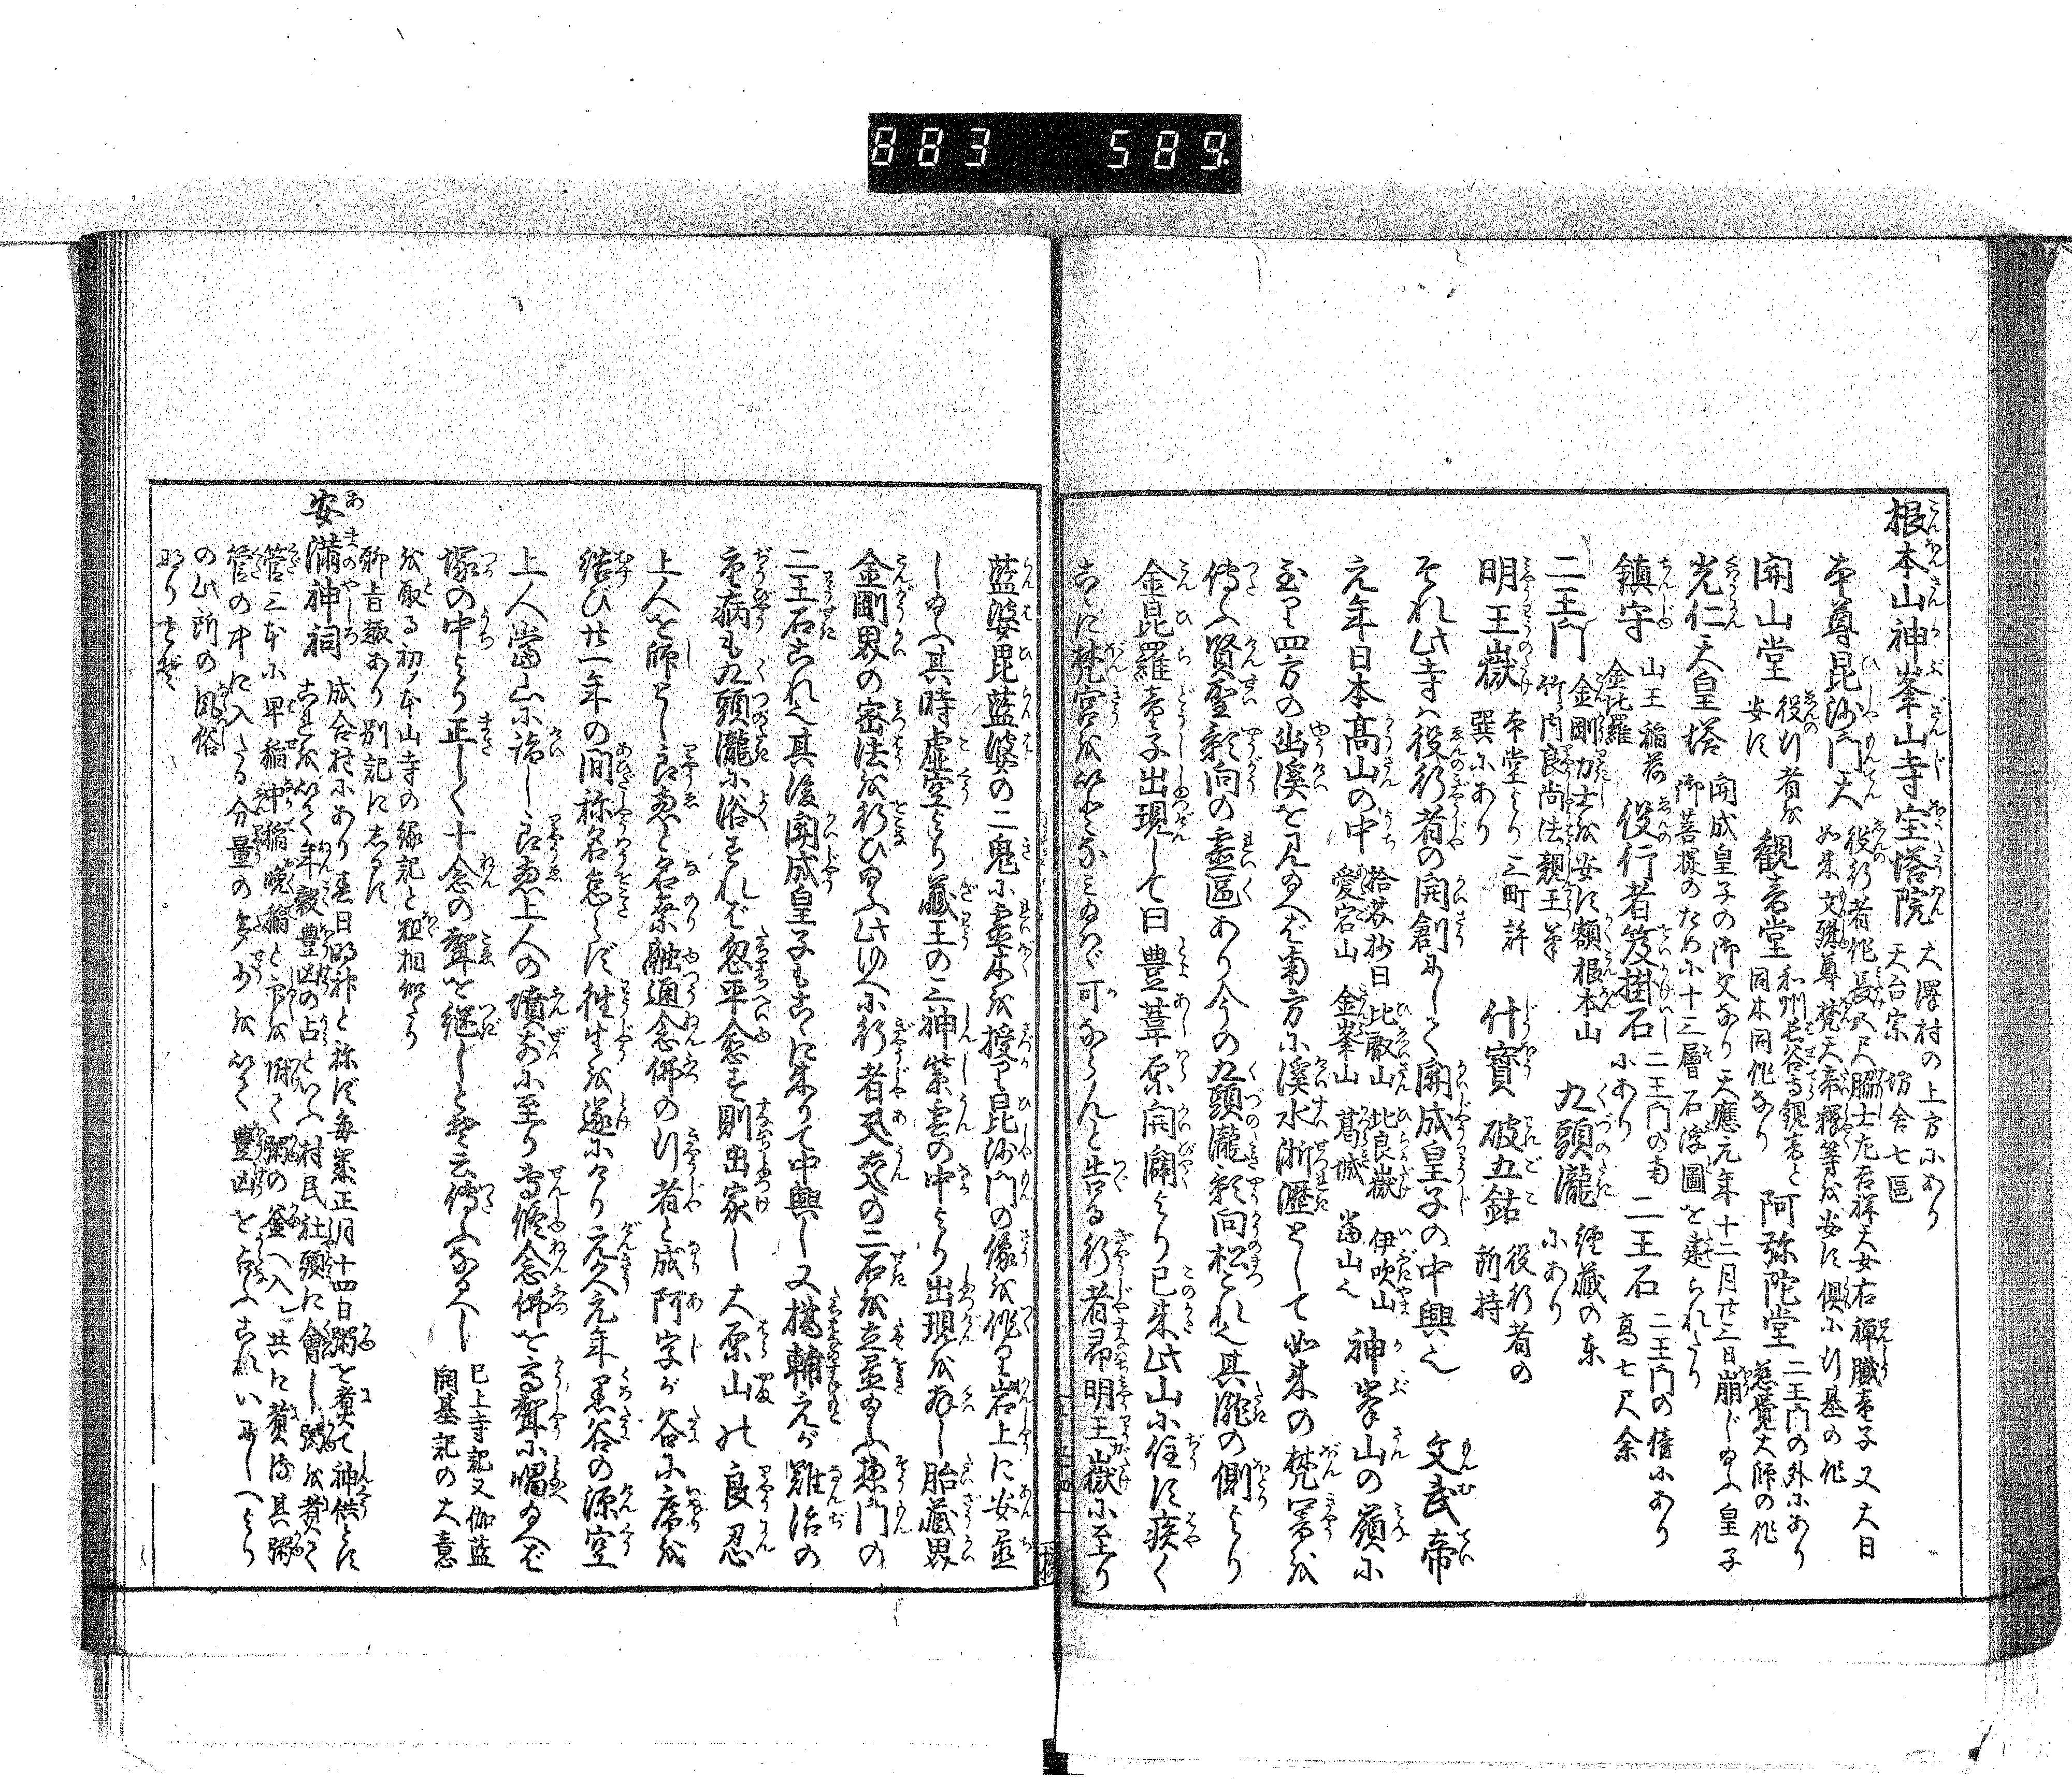 883 589
根本山神峯山寺宝塔院 大澤村の上方にあり 天台宗 坊舎七區
本尊毘沙門天 役行者作長八尺脇士左吉祥天女右禅膩童子又大日
如来文殊尊梵天帝釋等を安ず倶に行基の作
開山堂 役行者を安ず 観音堂 和州長谷寺観音と同木同作なり 阿弥陀堂 二王門の外にあり慈覚大師の作
光仁天皇塔 開成皇子の御父なり天應元年十二月廿三日崩じ給ふ皇子
御菩提のために十三層石浮圖を建られたり
鎮守 山王 稲荷 金比羅 役行者笈掛石 二王門の南にあり 二王石 二王門の傍にあり高七尺余
二王門 金剛力士を安ず額根本山 竹内良尚法親王筆 九頭瀧 経蔵の東にあり
明王嶽 本堂より三町許巽にあり 什寶 破五鈷 役行者の所持
それ此寺ハ役行者の開創にして開成皇子の中興也 文武帝
元年日本高山の中 拾芥抄曰 比叡山 比良嶽 伊吹山 愛宕山 金峯山 葛城 當山也 神峯山の嶺に
到り四方の幽溪を見給へば南方に溪水浙瀝として如来の梵響を
傳ふ賢聖影向の霊區あり今の九頭瀧影向松これ也其瀧の側より
金毘羅童子出現して曰豊葦原開闢より已来此山に住ず疾く
こゝに梵宮を いとなみ給はゞ可ならんと告る行者即明王嶽に至り
藍婆毘藍婆の二鬼に霊木を授け毘沙門の像を作り岩上に安置
し給ふ其時虚空より蔵王の三神紫雲の中より出現を 胎蔵界
金剛界の密法を行ひ給ふ此ゆへに行者阿吽の二石を立並給ふ惣門の
二王石これ也其後開成皇子もこゝに来りて中興し又橘輔元が難治の
重病も九頭瀧に浴すれば忽平愈す則出家し大原山の良忍
上人を師とし良恵と名乗融通念佛の行者と成阿字が谷に庵を
結び廿一年の間称名怠らず往生を遂にけり元久元年黒谷の源空
上人當山に詣し良恵上人の墳前に至り専修念佛を高聲に唱給へば
塚の中より正しく十念の聲を継しとぞ云傳ふなるべし 已上寺記又伽藍開基記の大意
を取る初ノ本山寺の縁記と粗相似たり
聊旨趣あり別記にしるす
安満神祠 成合村にあり春日明神と称ず毎歳正月十四日粥を煮て神供とす
これを以て年穀豊凶の占といふ村民社頭に會し粥を煮て
管三本に早稲中稲晩稲と印を附て粥の釜へ入共に煮る其粥
管の中に入たる分量の多少を以て豊凶を占ふこれいにしへより
の此所の風俗
なりとぞ